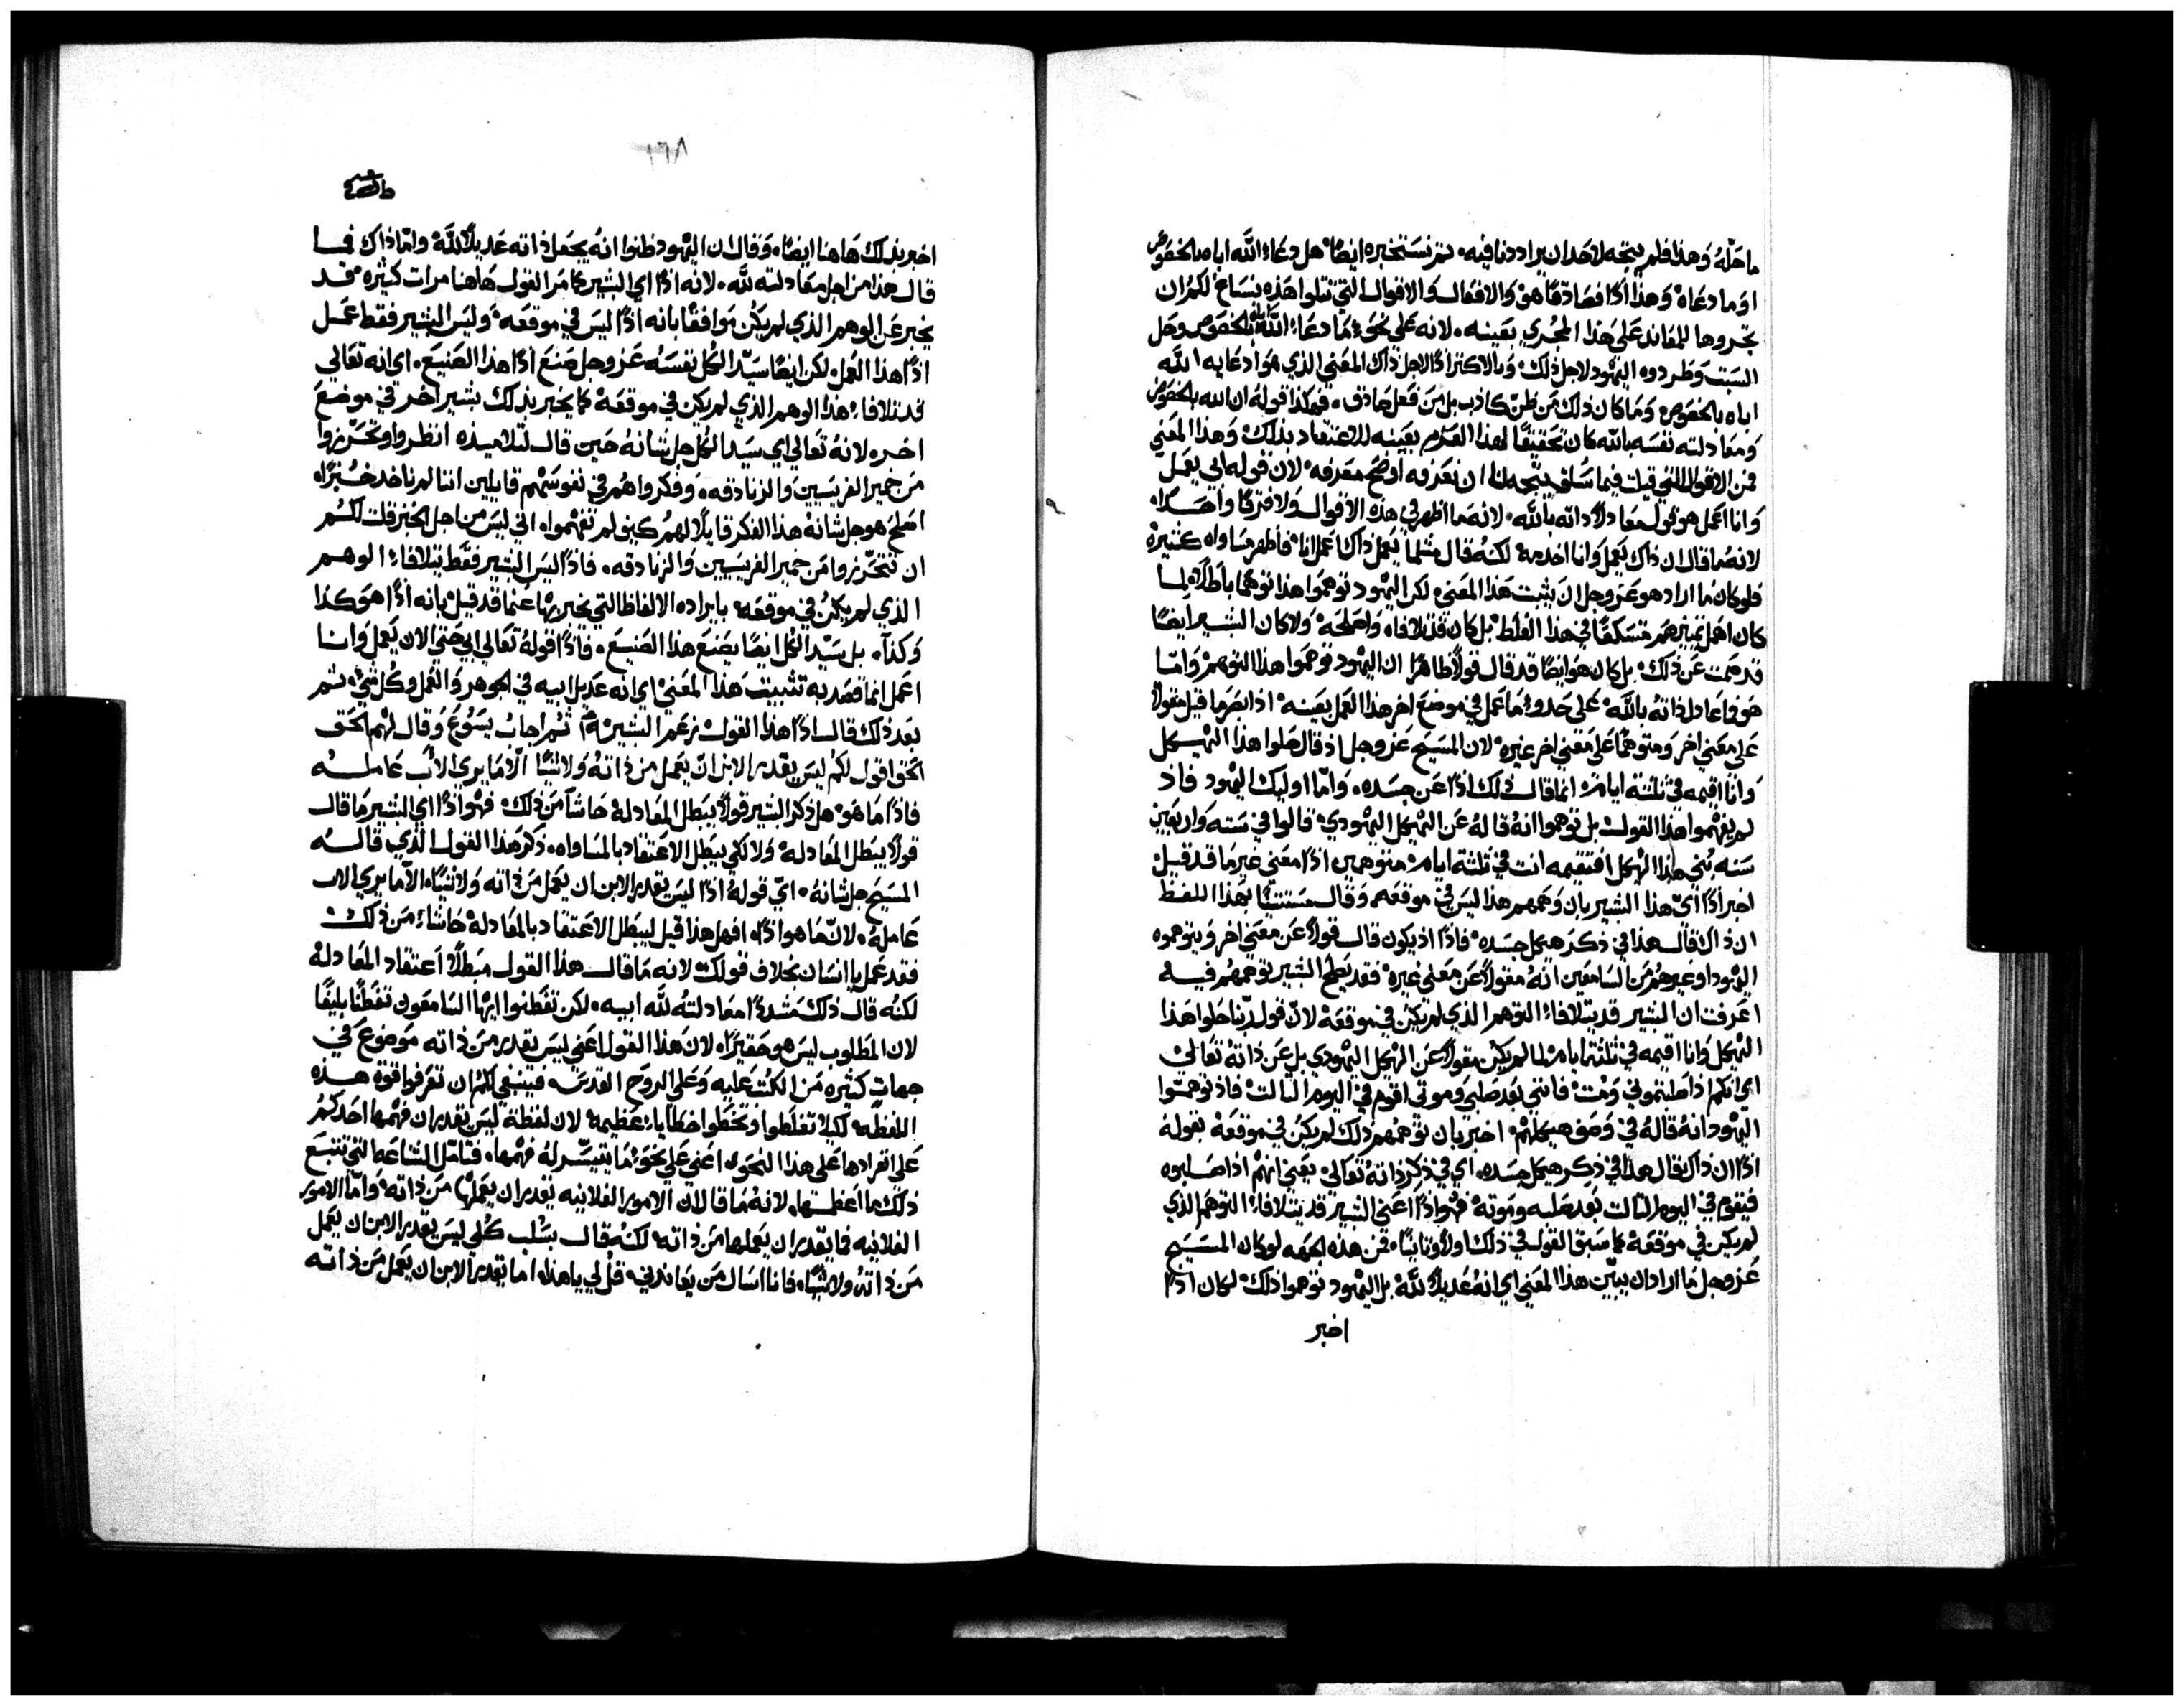 ما حَلّهُ وَهذا فلم يتجه لاحد ان يراددنا فيه. ثم نستخبره ايضًا هل دعا الله اباه بالخصوص
اوما دعاهْ وَهذا اذًا فصَادقًا هوَ والافعال والاقوال التي تتلوا هَذِه ينسَاغ لكم ان
تجروها للمعاند عَلى هَذا المجرى بعَينه. لانه عَلى نحو مَا دعَا الله اباه بالخصوص وحل
السبت وَطردوه اليهود لاجل ذلك وَبالاكثر اذًا لاجل ذاك المعَني الذي هوَ ادعَا به الله
اباه بالخصوص وَمَا كان ذلك مَن ظنّ كاذب بل مَن فعَل صَادق. فهكذا قولهُ ان الله بالخصوص
وَمعَادلته نفسَه بالله كان تحقيقًا لهذا العَزم بعَينه للاعتقاد بذلك وَهذا المعَني
فمن الاقوال التي قيلت فيما سَلف يتجه لنا ان نعَرفه اوضَح مَعَرفه لان قوله ابي يعَمل
وَانا اعَمل هو قول معَادلا ذاته بالله. لانه مَا اظهر في هذه الاقوال وَلا فرقًا واحَدًا.
لانه مَا قال ان ذاك يعَمل وَانا اخدمه لكنهُ قال مثلما يعَمل ذاك اعَمل انا فاظهر مسَاواه كثيره
فلو كان مَا اراد هو عَز وجل ان يثبت هَذا المعَني لكن اليهود توهموا هذا توهمًا باطلا لما
كان اهمل تمييزهم متسَكعًا في هذا الغلط بل كان قد تلافاه وَاصَلحَه وَلا كان البشير ايضًا
قد صَمت عَن ذلك. بل كان هوَ ايضًا قد قال قولا ظاهرًا ان اليهود توهموا هذا التوهم وَاما
هوَ فمَا عَادل ذاته بالله عَلى حَدو مَا عَمل في موضع اخر هذا العَمل بعَينه اذ ابصَر مَا قيل مقولاً
عَلى معَني اخر وَمتوهمًا عَلى مَعَني اخر غيره لان المسَيح عَز وجل اذ قال حَلوا هذا الهيكل
وَانا اقيمه في ثلثة ايام انما قال ذلك اذًا عَن جسَده. وَامّا اوليك اليهود فاذ
لم يفهموا هذا القول بل توهموا انهُ قالهُ عَن الهيكل اليهودي. قالوا في سَته وَاربعَين
سَنه بُني هذا الهيكل افتقيمه انت في ثلثة ايام متوهمين اذًا معَني غير مَا قد قيل
اخبر اذًا ايّ هذا البشير بان وَهمهم هذا ليس في موقعَه وَقال مستثنيًا بهذا اللفظ
ان ذاك قال هذا في ذكر هيكل جسَده. فاذًا اذ يكون قال قولاً عَن معَني اخر وَيتوهموه
اليهود او غيرهم مَن السَامعَين انهُ مقولاً عَن مَعَني غيره فقد يصَلح البشير توهمهم فيه
اعَرفت ان البشير قد يتلافا التوهم الذي لم يكن في موقعَه لانّ قول ربّنا حلوا هَذا
الهيكل وَانا اقيمه في ثلثة ايام لما لم يكن مقولا عَن الهيكل اليهودي بل عَن ذاته تعَالى
اي انكم اذا صَلبتموني وَمت فانني بعَد صَلبي وَموتي اقوم في اليوم الثالث فاذ توهمتوا
اليهود انهُ قالهُ في وَصَف هيكلهم اخبر بان توهمهم ذلك لم يكن في موقعَه بقولهُ
اذًا ان ذاك قال هذا في ذكر هيكل جسَده. اي في ذكر ذاته تعَالى يعَني انهم اذا صَلبوه
فيقوم في اليوم الثالث بعَد صَلبه وموته فهوَ اذًا اعَني البشير قد يتلافا التوهم الذي
لم يكن في موقعَه كما سَبق القول في ذلك اولاً وثانيًا. فمن هذه الجهه لو كان المسَيح
عَز وجل مَا اراد ان يبيّن هذا المعَني اي انهُ عَديلا لله بل اليهود توهموا ذلك لكان اذًا
اخبر
١٦٨
اخبر بذلك هَاهنا ايضًا. وَقال ان اليهود ظنوا انهُ يجعَل ذاته عَديلاً لله وامّا ذاك فما
قال هذا من اجل معَادلته لله. لانه اذًا اي البشير كما مَر القول هَاهنا مرات كثيره قد
يخبر عَن الوهم الذي لم يكُن موَافقًا بانه اذًا ليسَ في موقعَه. وَليسَ البشير فقط عَمل
اذًا هذا العَمل لكن ايضًا سَيّد الكل نفسَهُ عَز وجل صَنعَ اذًا هذا الصَنيعَ. اي انه تعَالي
قد تلافا هذا الوهم الذي لم يكن في موقعَه كما يخبر بذلك بشير اخر في موضعَ
اخر. لانهُ تعَالي اي سَيد الكل جل شانهُ حَين قال لتلاميذه انظروا وَتحَرّزوا
مَن خمير الفريسَيين وَالزنادقه. وَفكروا هُم في نفوسَهم قايلين اننا لم ناخد خُبزًا.
اصَلح هو جل شانهُ هذا الفكر قايلًا لهم كيف لم تفهموا. اني ليسَ من اجل الخبز قلت لكم
ان تتحَرّزوا مَن خمير الفريسيين وَالزنادقه. فاذًا ليسَ البشير فقط يتلافا الوهم
الذي لم يكنُ في موقعَه بايراده الالفاظ التي يخبر بها عَنما قد قيل بانه اذًا هوَ كذا
وَكذا. بل سَيّد الكل ايضًا يصَنع هذا الصَنيعَ. فاذًا قولهُ تعَالي ابي حَتي الان يَعَمل وَانا
اعَمل انما قصَد به تثبيت هَذا المعَني اي انه عَديل ابيه في الجوهر وَالعَمل وَكل شي. ثم
بعَد ذلك قال اذًا هذا القول نرعَم البشير ثمراجابُ يسَوُعَ وَقال لهم الحَق
الحَق اقول لكم ليسَ يقدر الابن ان يعَمل من ذاته وَلا شيًا الّا مَا يري الاَب عَامله
فاذًا مَا هوَ هل ذكر البشير قولاً يبَطل المعَادله حَاشا مَن ذلك فهوَ اذًا اي البشير مَا قال
قولاً يبَطل المعَادله وَلا لكي يبَطل الاعتقاد بالمسَاواه. ذكر هذا القول الذي قاله
المسَيح جل شانهُ. ايّ قولهُ اذًا ليسَ يقدر الابن ان يعَمل مَن ذاته وَلا شيًا. الّا مَا يري الاب
عَاملهُ. لانّ مَا هوَ اذًا. افهل هذا قيل ليبَطل الاعتقاد بالمعَادله حَاشا مَن ذلك
فقد عَمل يا انسَان بخلاف قولك لانه مَا قال هذا القول مبَطلاً اعتقاد المعَادله
لكنهُ قال ذلك مَشددًا معَادلتهُ لله ابيه. لكن تفطنوا ايها السَامعَون تفطنًا بليغًا
لان المطلوب ليسَ هو حَقيرًا. لان هَذا القول اعَني ليسَ يقدر مَن ذاته مَوضوعَ في
جهات كثيره مَن الكتب عَليه وَعَلي الروَح القدس. فينبغي لكم ان تعَرفوا قوة هذه
اللفظه لكيلا تغلَطوا وَتخطوا خطايا عَظيمه لان لفظة ليسَ يقدر ان فهمها احَدكم
عَلى انفرادها عَلي هذا النحَو. اعَني عَلي نحوَ مَا يتيسّر لهُ فهمها. فتامّل الشناعَه التي تتبع
ذلك مَا اعَظمها. لانهُ مَا قال ان الامور الفلانيه يقدر ان يعَملها مَن ذاته. وَامّا الامور
الفلانيه فما يقدر ان يعَملها مَن ذاته لكنهُ قال بسَلب كلي ليسَ يقدر الابن ان يعَمل
مَن ذاتهُ وَلا شيًا. فانا اسَال مَن يعَاندني. قل لي يا هذا. اما يقدر الابن ان يعَمل مَن ذاته